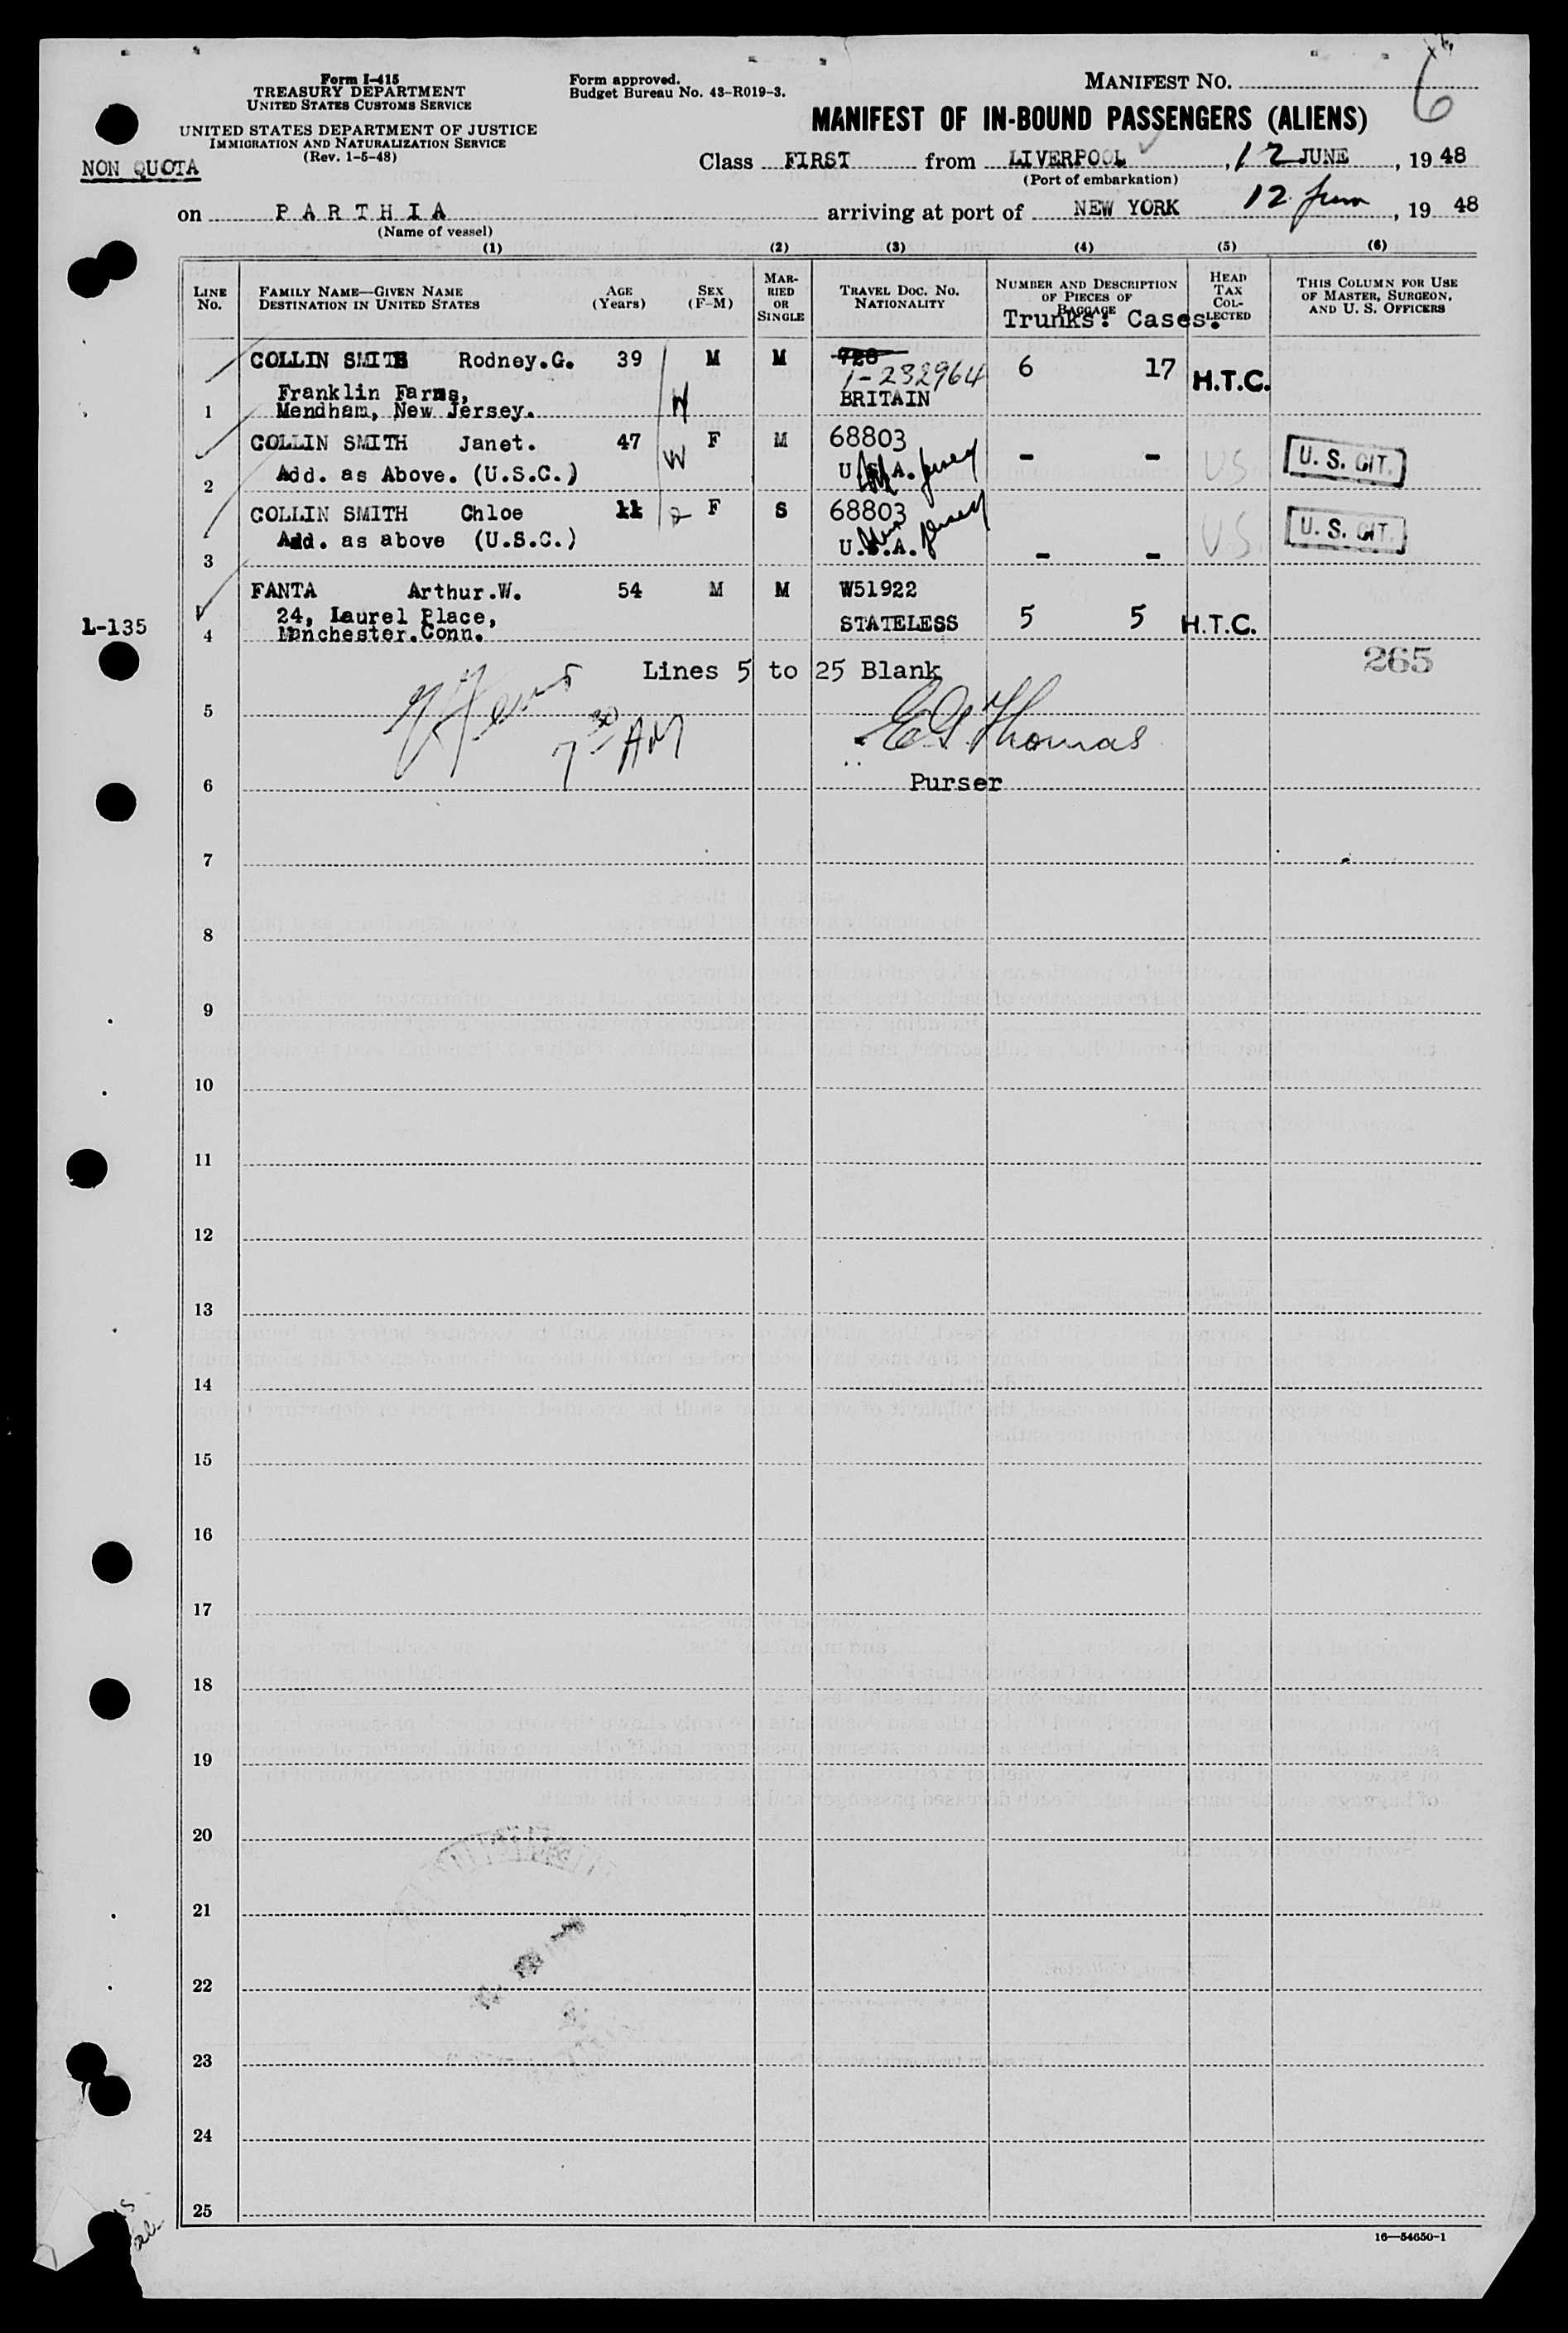 Form I-415
TREASURY DEPARTMENT
UNITED STATES CUSTOMS SERVICE
UNITED STATES DEPARTMENT OF JUSTICE
IMMIGRATION AND NATURALIZATION SERVICE
(Rev. 1-5-48)
NON QUOTA
Form approved.
Budget Bureau No. 43-R019-3.
MANIFEST NO. 6
MANIFEST OF IN-BOUND PASSENGERS (ALIENS)
Class FIRST from LIVERPOOL, 12 JUNE, 1948
(Port of embarkation)
on PARTHIA arriving at port of NEW YORK 12 June, 1948
(Name of vessel)
(1) (2) (3) (4) (5) (6)
LINE NO. FAMILY NAME—GIVEN NAME DESTINATION IN UNITED STATES AGE (Years) SEX (F-M) MARRIED OR SINGLE TRAVEL DOC. NO. NATIONALITY NUMBER AND DESCRIPTION OF PIECES OF BAGGAGE HEAD TAX COLLECTED THIS COLUMN FOR USE OF MASTER, SURGEON, AND U. S. OFFICERS
Trunks: Cases:
COLLIN SMITH Rodney.G. 39 M M 728
1-232964 6 17 H.T.C.
Franklin Farms, W BRITAIN
1 Mendham, New Jersey.
COLLIN SMITH Janet. 47 W F M 68803 - - US U. S. CIT.
2 Add. as Above. (U.S.C.) U.S.A.
COLLIN SMITH Chloe 11 F S 68803 US U. S. CIT.
3 Add. as above (U.S.C.) U.S.A. - -
FANTA Arthur.W. 54 M M W51922
24, Laurel Place, STATELESS 5 5 H.T.C.
L-135
4 Manchester.Conn.
265
Lines 5 to 25 Blank
5
7 30 AM
E G Thomas
6 Purser
7
8
9
10
11
12
13
14
15
16
17
18
19
20
21
22
23
24
25
16—54650-1